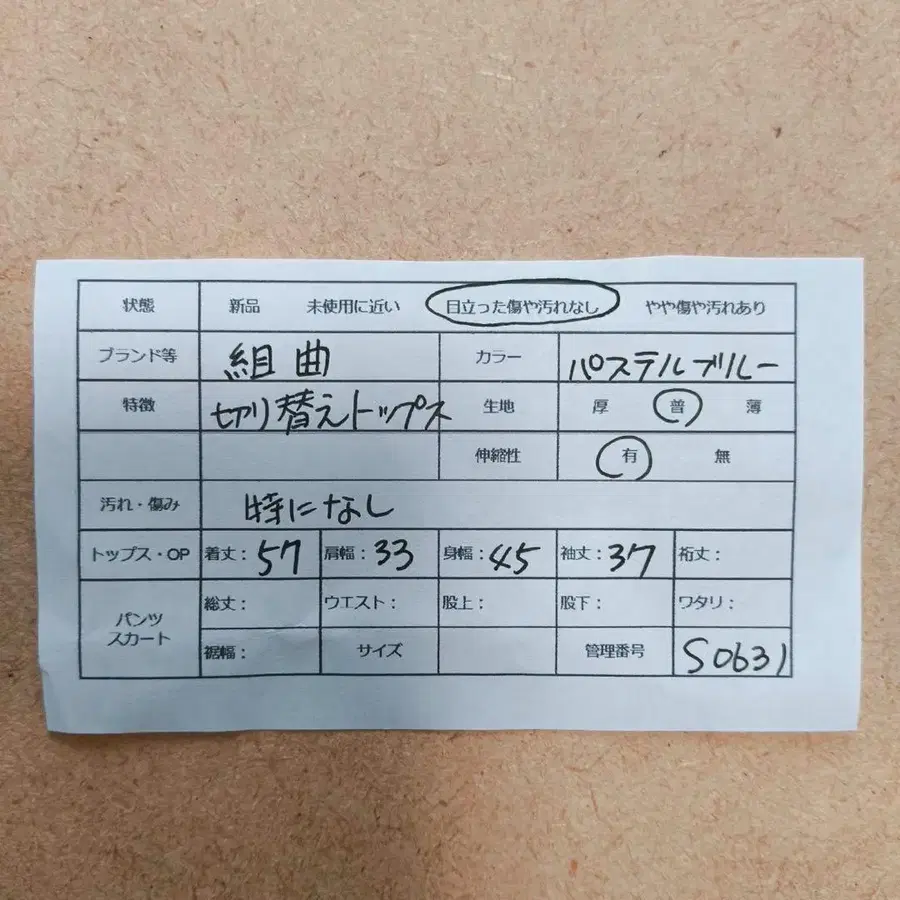 状態 新品 未使用に近い 目立った傷や汚れなし やや傷や汚れあり
ブランド等 組曲 カラー パステルブルー
特徴 切り替えトップス 生地 厚 普 薄
伸縮性 有 無
汚れ・傷み 特になし
トップス・OP 着丈：57 肩幅：33 身幅：45 袖丈：37 裄丈：
パンツ スカート 総丈： ウエスト： 股上： 股下： ワタリ：
裾幅： サイズ 管理番号 S0631